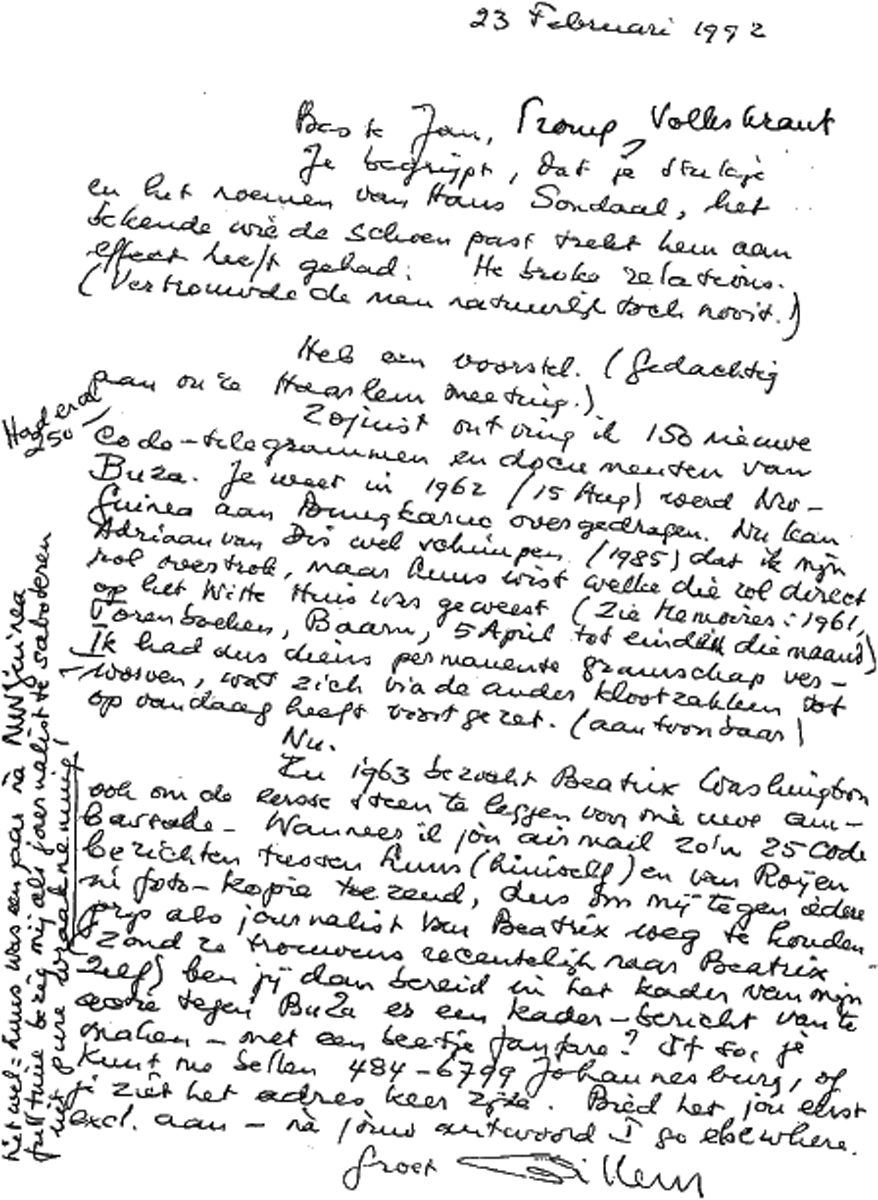 23 Februari 1992
Beste Jan, Tromp, Volkskrant
Je begrijpt, dat je stukje
en het noemen van Hans Sondaal, het
bekende wie de schoen past trekt hem aan
effect heeft gehad: He broke relations.
(Vertrouwde de man natuurlijk toch nooit.)
Heb een voorstel. (Gedachtig
aan onze Haarlem meeting.)
Zojuist ontving ik 150 nieuwe
Had er al 250
code-telegrammen en documenten van
BuZa. Je weet in 1962 (15 Aug) werd Nw-
Guinea aan Bungkarno overgedragen. Nu kan
Adriaan van Dis wel schimpen (1985) dat ik mijn
rol overtrok, maar Luns wist welke die rol direct
op het Witte Huis was geweest (Zie Memoires: 1961,
Torenboeken, Baarn, 5 April tot einde die maand)
Ik had dus diens permanente gramschap ver-
worven, wat zich via de ander klootzakken tot
op vandaag heeft voortgezet. (aantoonbaar)
Nu.
In 1963 bezocht Beatrix Washington
ook om de eerste steen te leggen voor onze nieuwe am-
bassade - Wanneer ik jou airmail zo'n 25 code
berichten tussen Luns (himself) en van Roijen
in foto-kopie toezend, dus om mij tegen iedere
prijs als journalist van Beatrix weg te houden
(Zond ze trouwens recentelijk naar Beatrix
zelf) ben jij dan bereid in het kader van mijn
actie tegen BuZa er een kader-bericht van te
maken - met een beetje fanfare? If so, je
kunt me bellen 484-6799 Johannesburg, of
je ziet het adres keerzijde. Bied het jou eerst
excl. aan - na jouw antwoord I go elsewhere.
Groet Willem
het wel = Luns was een paar na NW Guinea
full time bezig mij als journalist te saboteren
uit pure wraakneming!